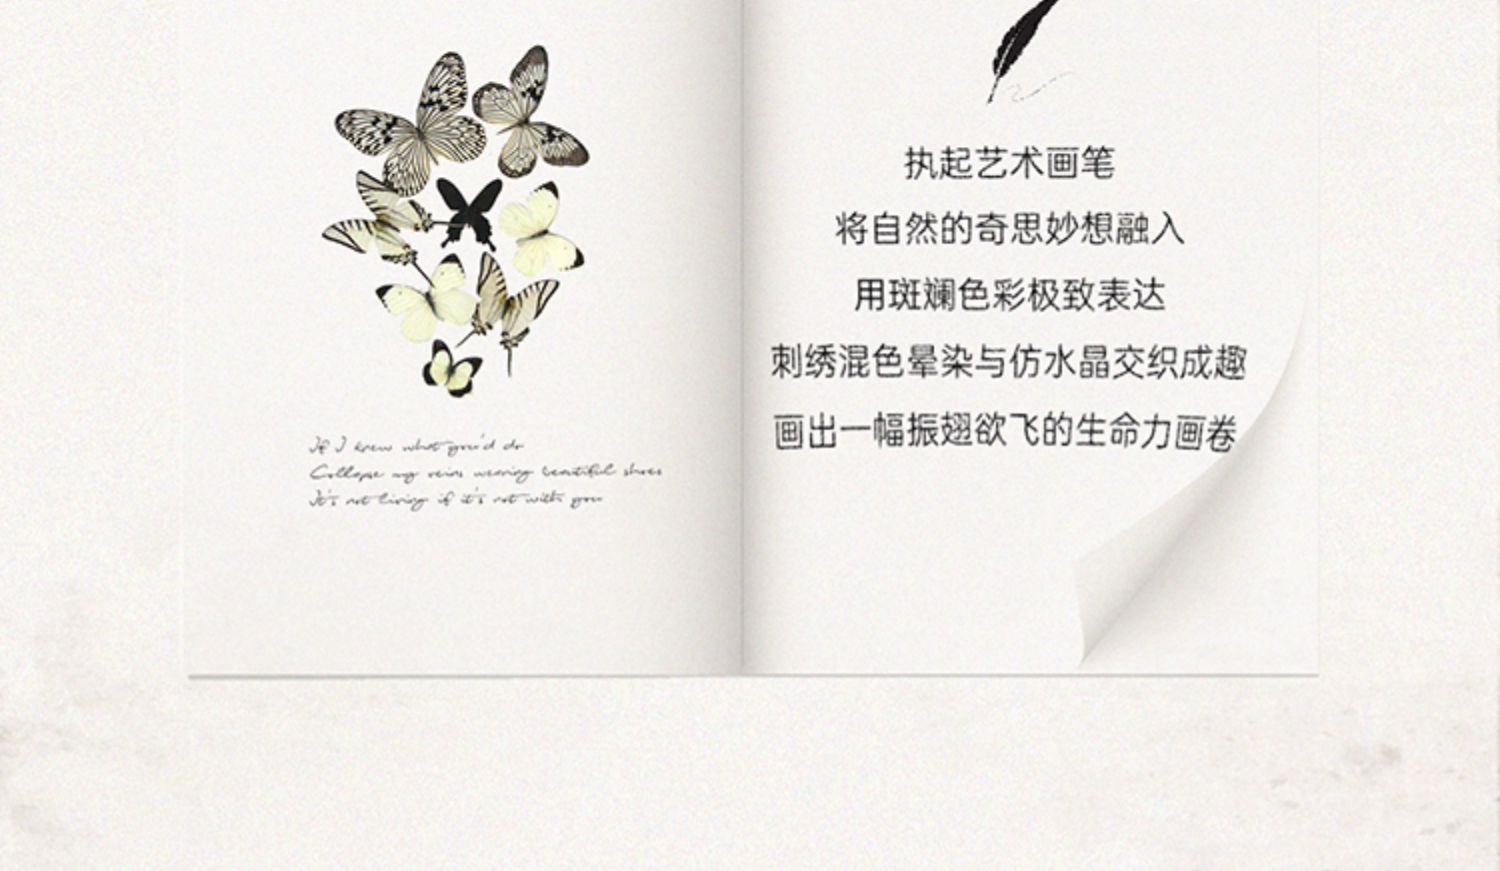 If I knew what you'd do
Collapse my veins wearing beautiful shoes
It's not living if it's not with you
执起艺术画笔
将自然的奇思妙想融入
用斑斓色彩极致表达
刺绣混色晕染与仿水晶交织成趣
画出一幅振翅欲飞的生命力画卷